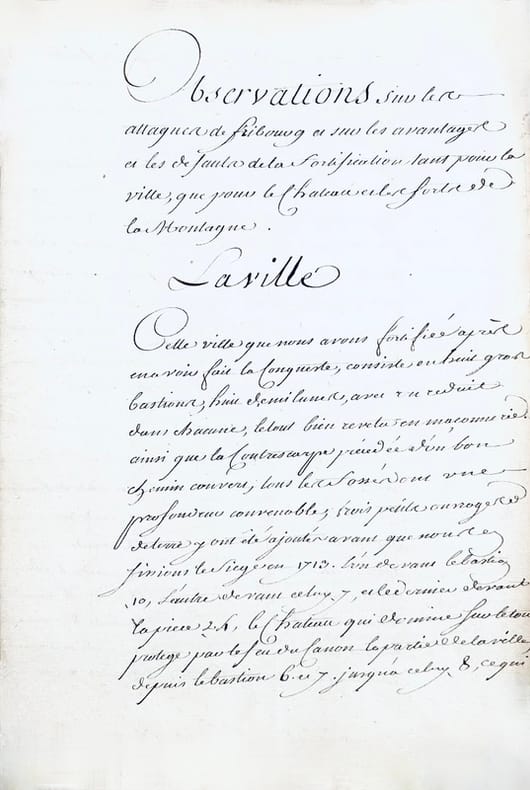 Observations sur les
attaques de fribourg et sur les avantages
et les defauts de la fortification tant pour la
ville, que pour le Chateau et les forts de
la Montagne.
La ville
Cette ville que nous avons fortifiée après
en avoir fait la Conqueste, consiste en huit gros
bastions, huit demilunes, avec un reduit
dans chacune, le tout bien revetu en maçonnerie
ainsi que la Contrescarpe précédée d'un bon
chemin couvert, tous les fossés ont une
profondeur convenable; trois petits ouvrages
de terre y ont été ajoutés avant que nous en
fissions le Siege en 1713. l'un devant le bastion
10, l'autre devant celuy 7, et le dernier devant
la piece 24, le Chateau qui domine sur le tout
protege par le feu du Canon la partie de la ville
depuis le bastion 6 et 7. jusqu'à celuy 8, ce qui